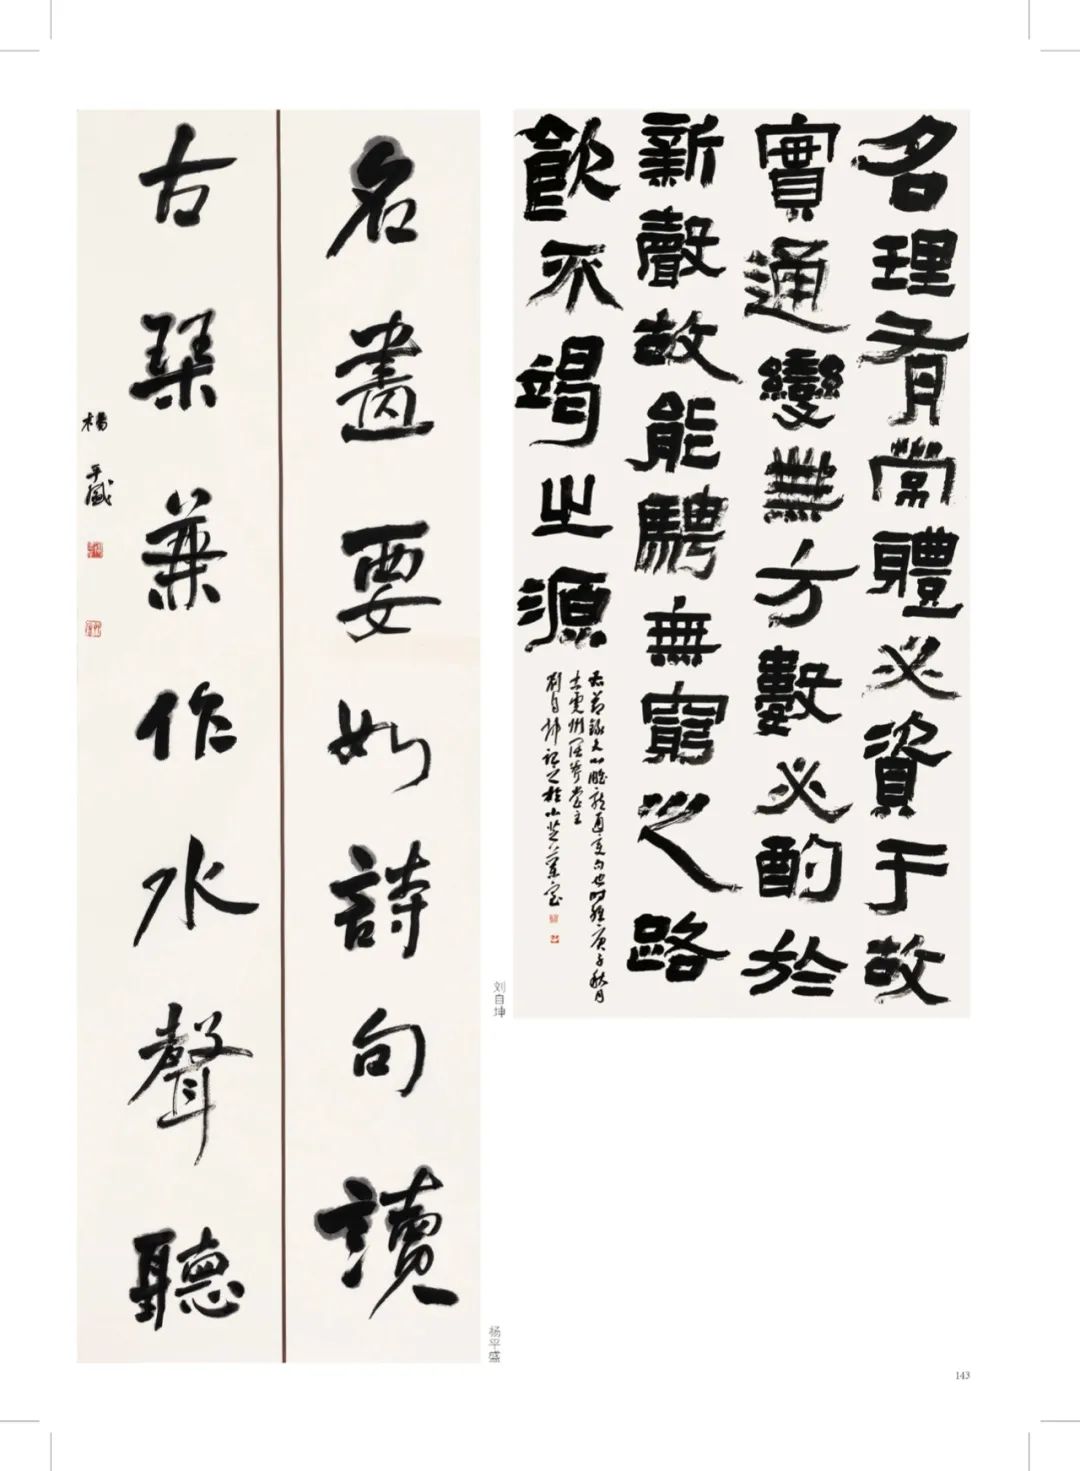 名畫要如詩句讀
古琴兼作水聲聽
楊平盛
杨平盛
名理有常體必資于故
實通變無方數必酌於
新聲故能騁無窮之路
飲不竭之源
右節錄文心雕龍通變句也时維庚子秋月
堂主
劉自坤記之於小芝蘭室
刘自坤
143